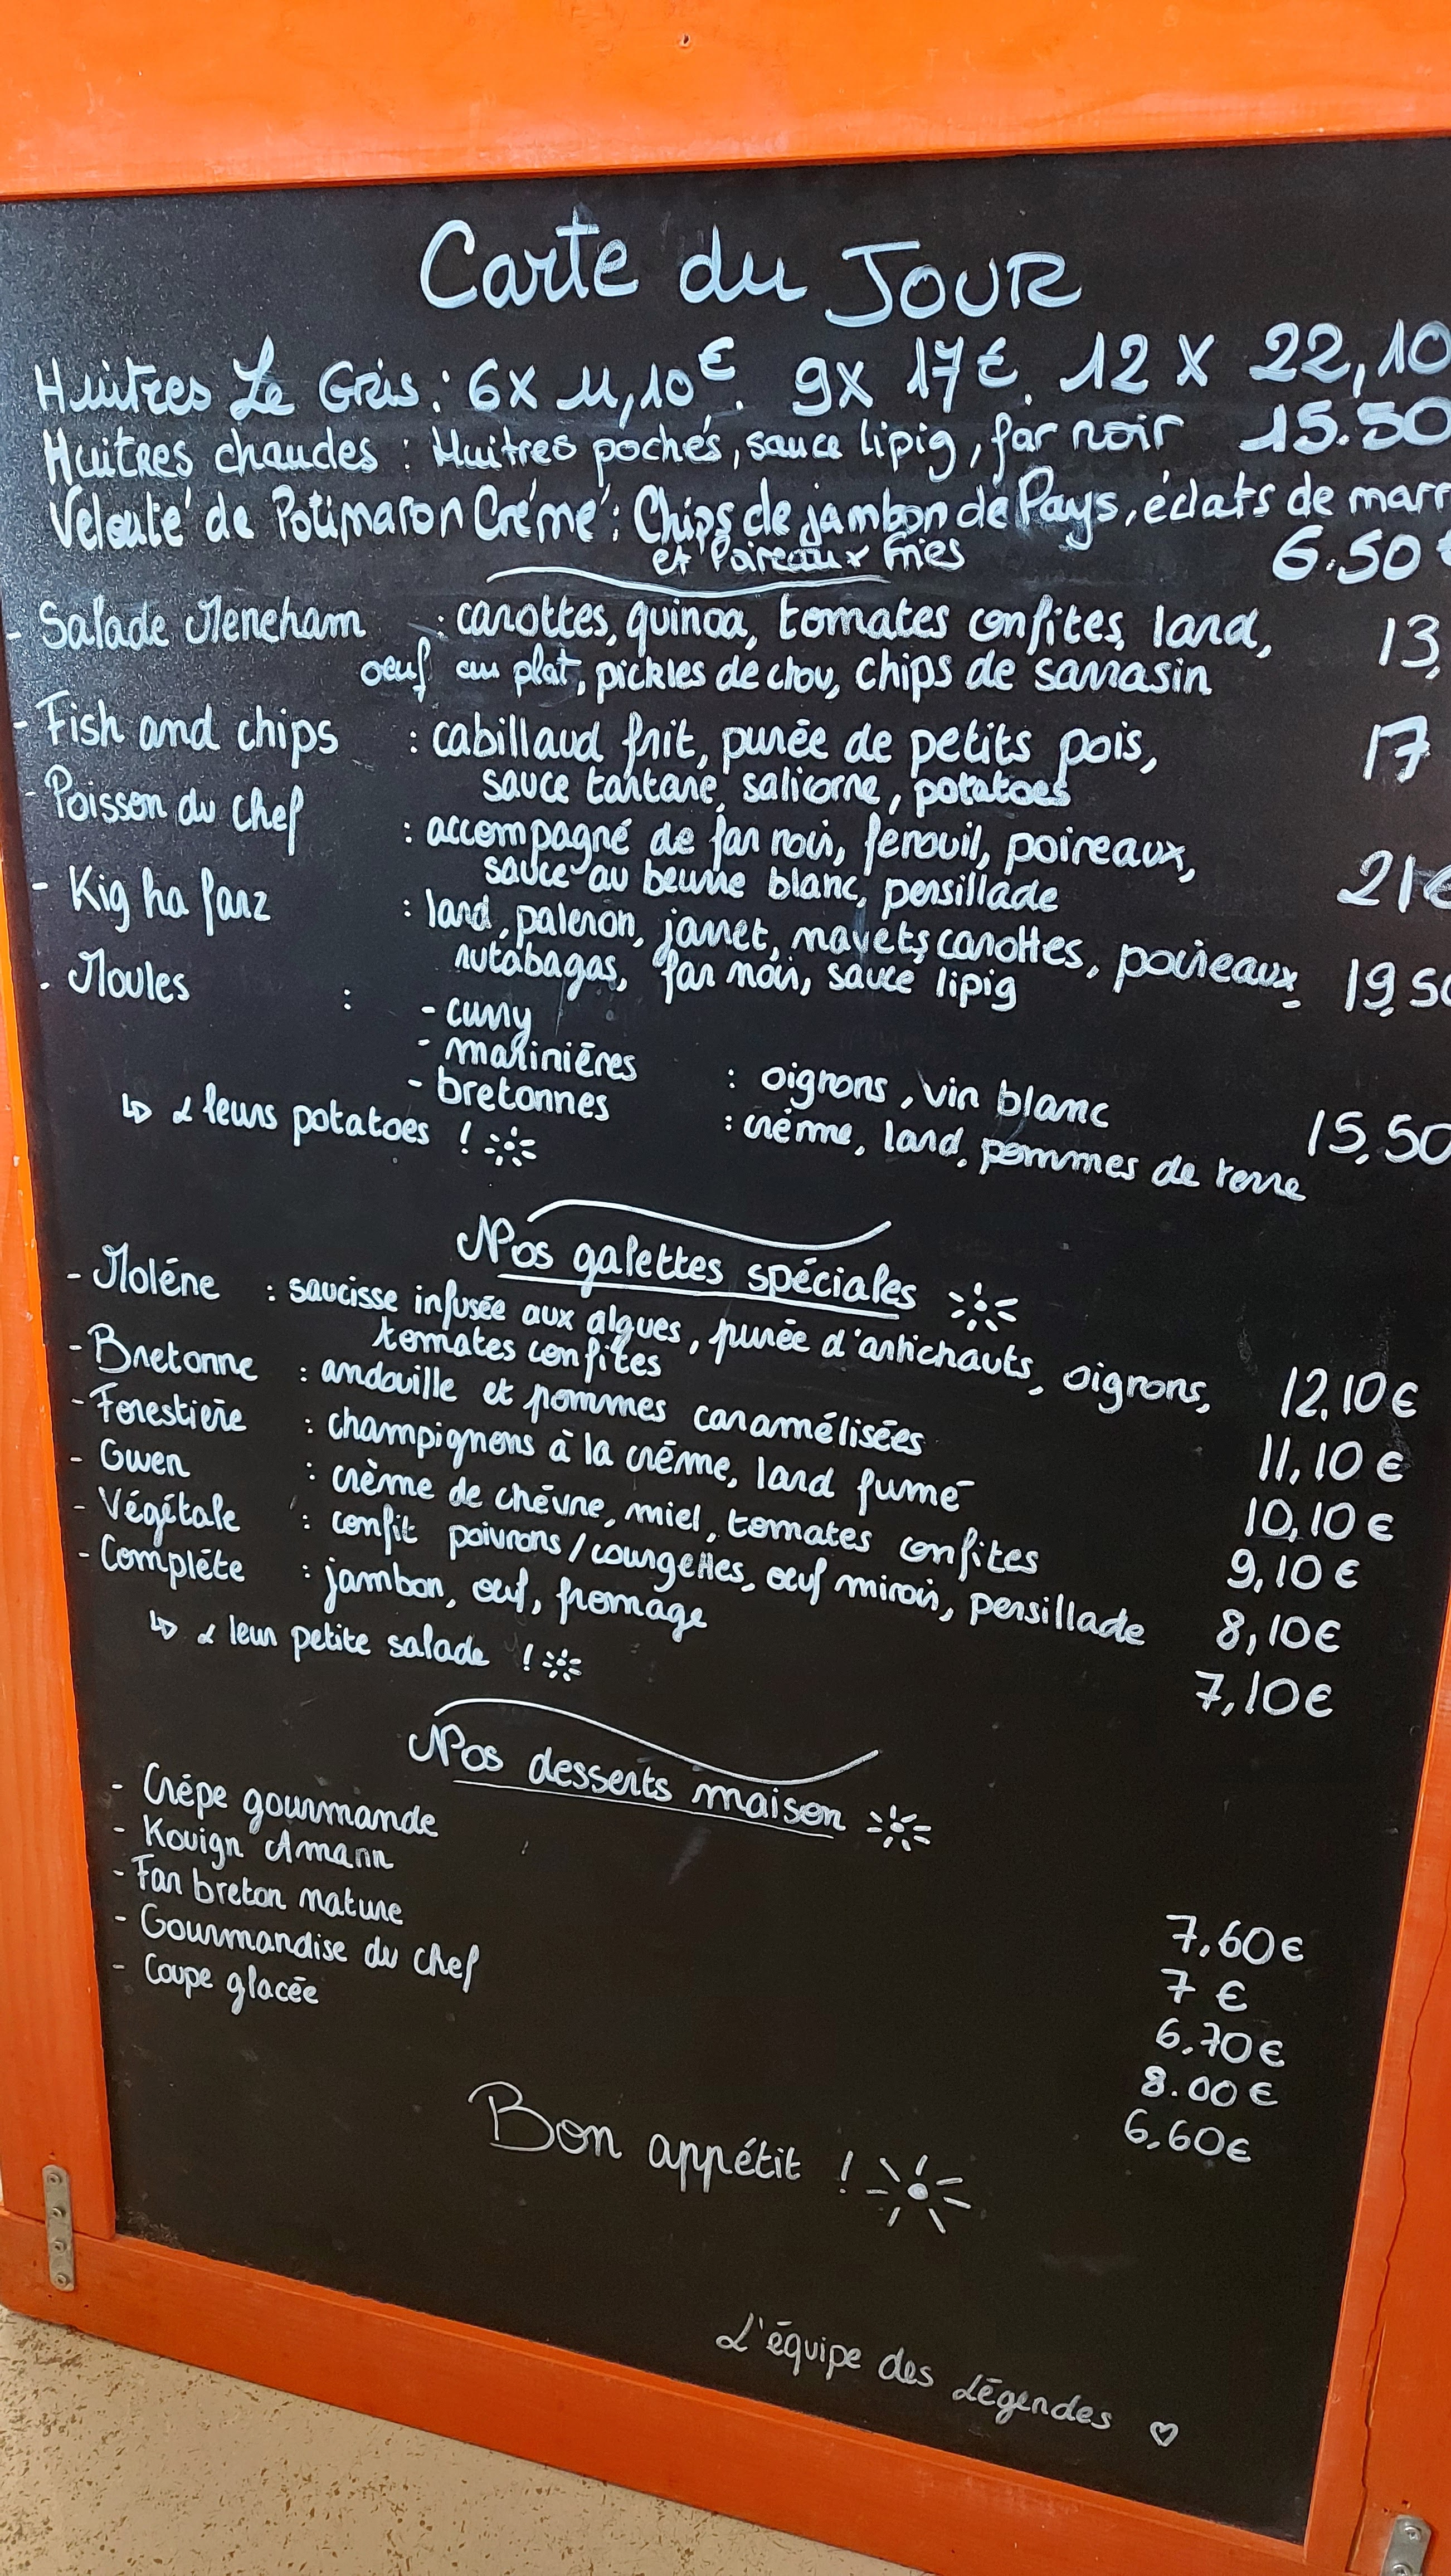 Carte du JOUR
Huîtres Le Gris : 6x 11,10€. 9x 17€. 12 x 22,10
Huitres chaudes : Huitres pochés, sauce lipig, far noir 15.50
Velouté de Potimaron Crémé : Chips de jambon de Pays, éclats de marr
et Poireaux Fries 6.50€
- Salade Meneham : carottes, quinoa, tomates confites, lard, 13,
oeuf au plat, pickles de chou, chips de sarrasin
- Fish and chips : cabillaud frit, purée de petits pois, 17
sauce tartare, salicorne, potatoes
- Poisson du chef : accompagné de far noir, fenouil, poireaux, 21€
sauce au beurre blanc, persillade
- Kig ha farz : lard, paleron, jarret, navets, carottes, poireaux, 19,50
rutabagas, far noir, sauce lipig
- Moules : - curry
- marinières : oignons, vin blanc 15,50
- bretonnes : crème, lard, pommes de terre
↳ & leurs potatoes !
Nos galettes spéciales
- Molène : saucisse infusée aux algues, purée d'artichauts, oignons, 12,10€
tomates confites
- Bretonne : andouille et pommes caramélisées 11,10€
- Forestière : champignons à la crème, lard fumé 10,10€
- Gwen : crème de chèvre, miel, tomates confites 9,10€
- Végétale : confit poivrons/courgettes, œuf miroir, persillade 8,10€
- Complète : jambon, œuf, fromage 7,10€
↳ & leur petite salade !
Nos desserts maison
- Crêpe gourmande 7,60€
- Kouign Amann 7 €
- Far breton nature 6,70€
- Gourmandise du chef 8.00€
- Coupe glacée 6,60€
Bon appétit !
L'équipe des Légendes ♡